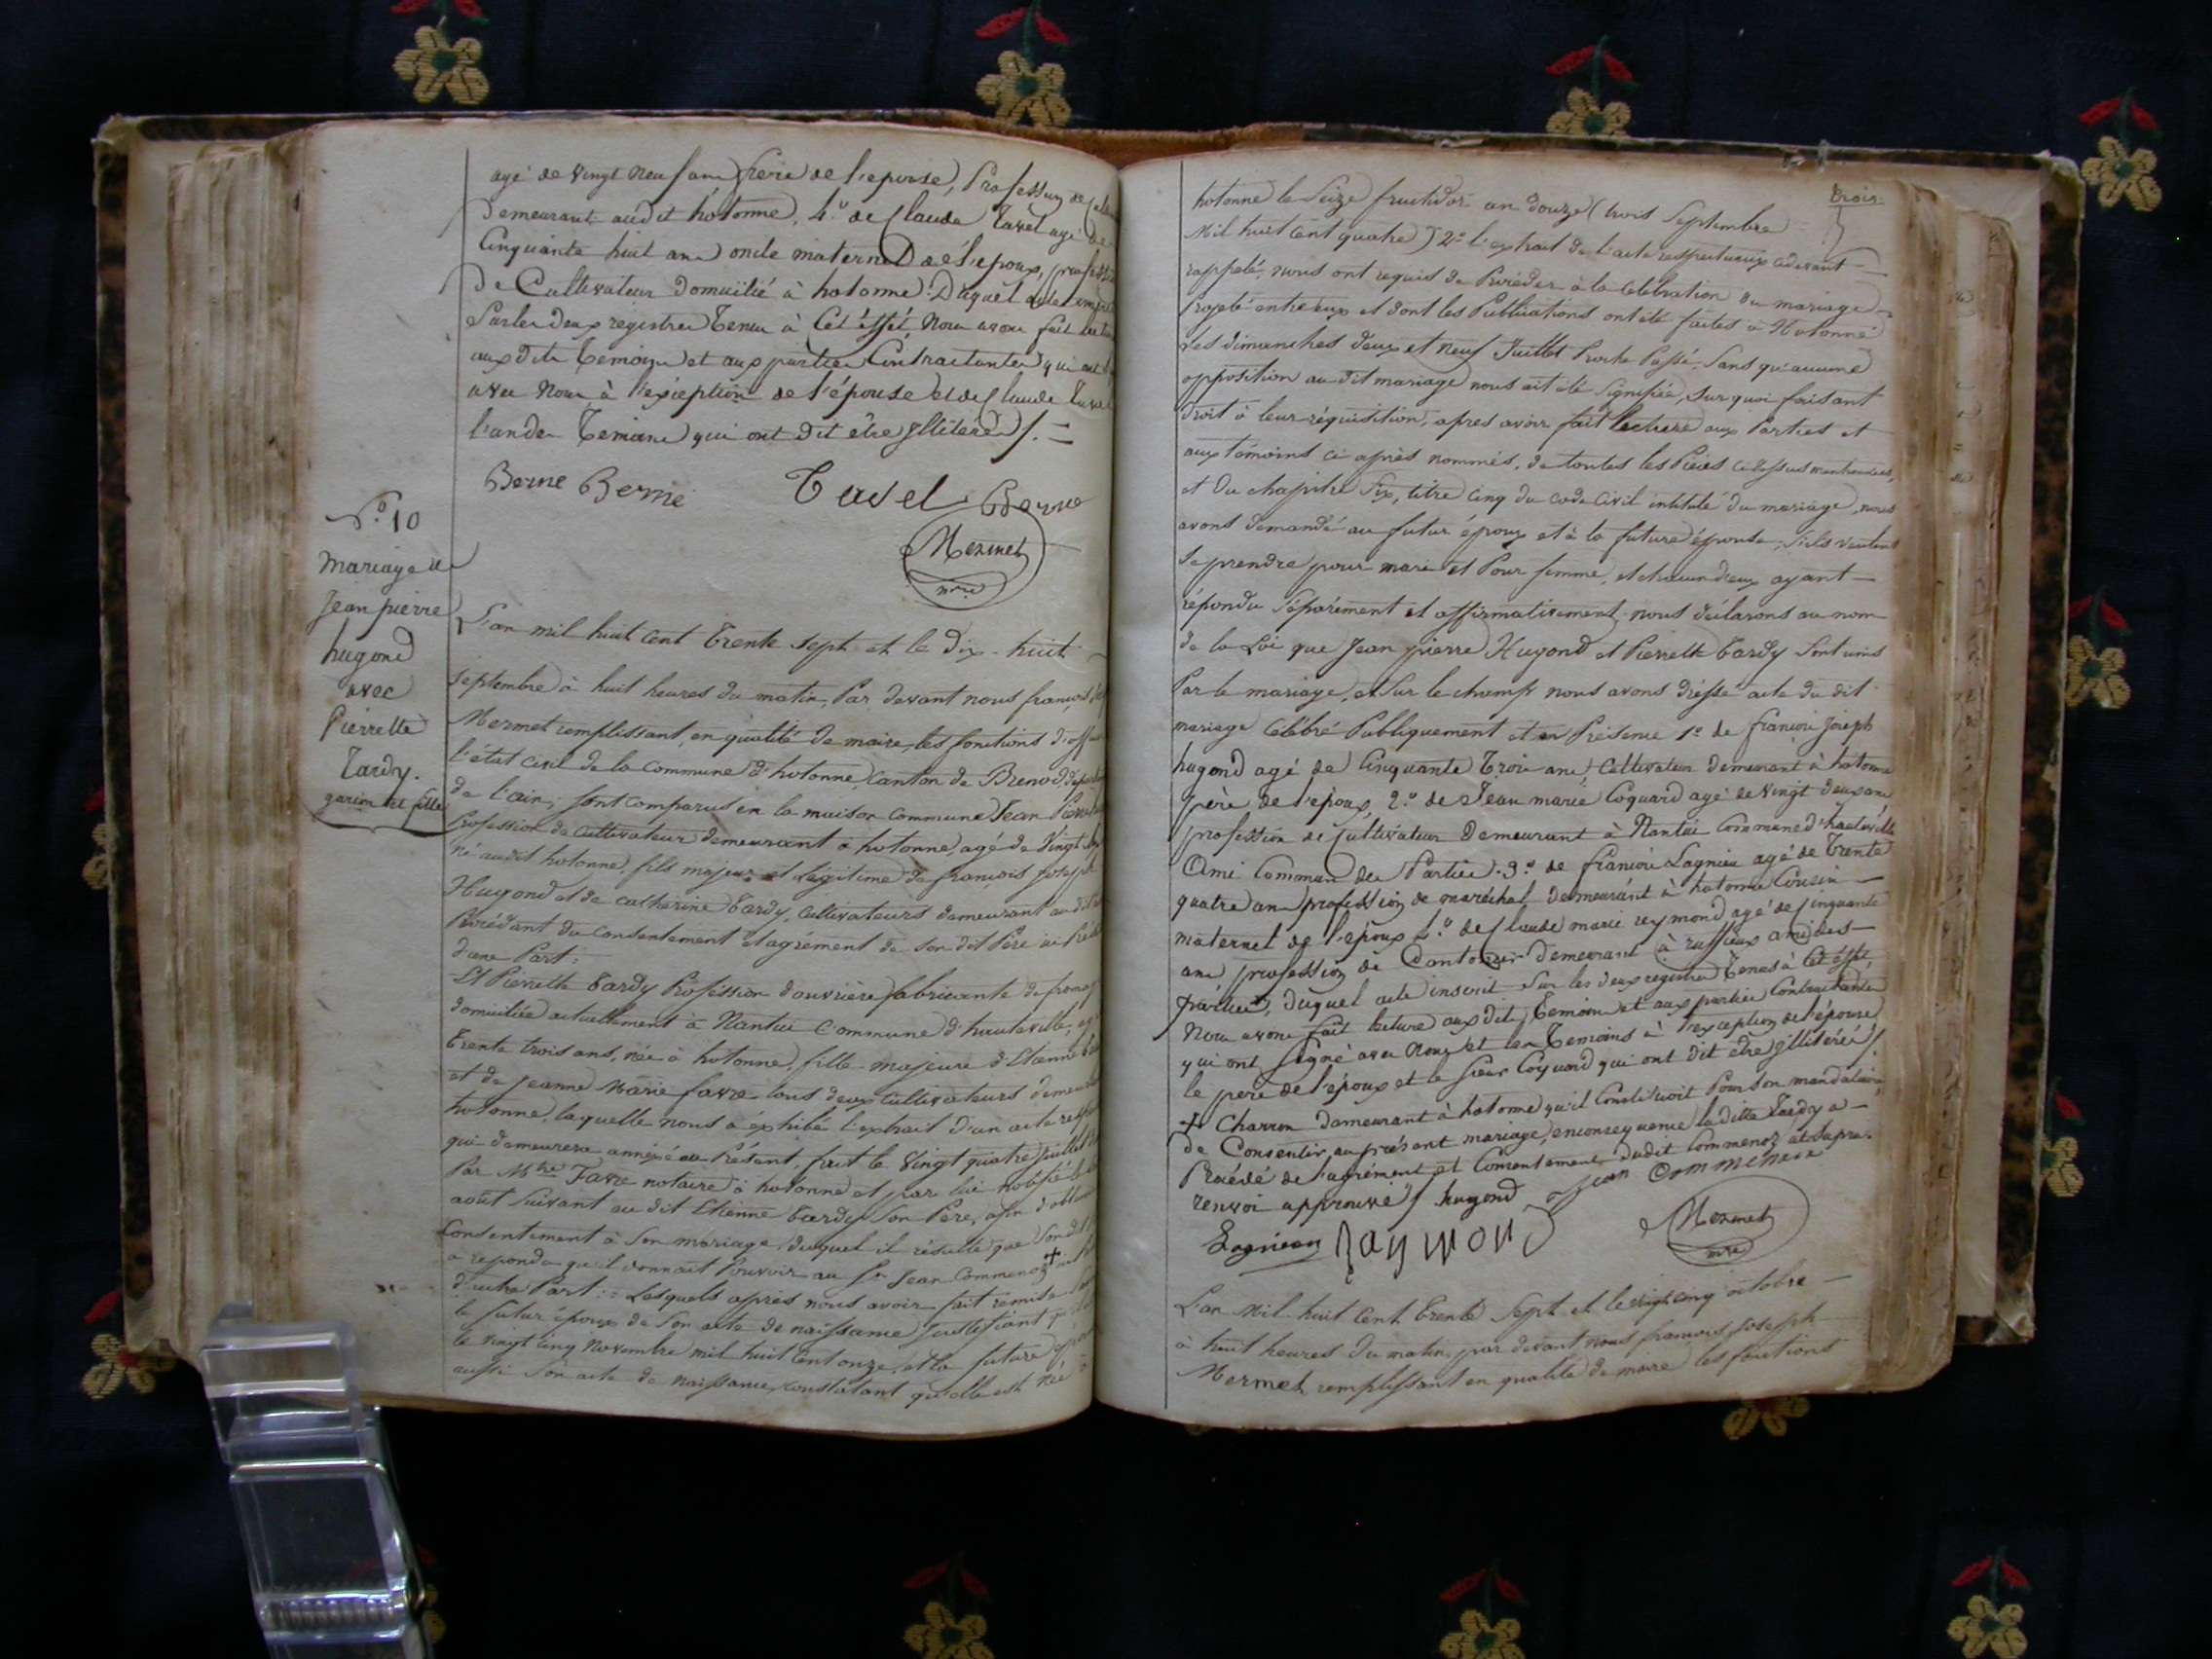 agé de vingt neuf ans frère de l'epouse, Profession de
demeurant audit hotonne, 4.º de Claude Tavel agé de
Cinquante huit ans oncle maternel de l'epoux, profession
de Cultivateur domicilié à hotonne. Duquel acte
Sur les deux registres tenus à Cet effet, Nous avons fait lecture
aux dits temoins et aux parties Contractantes qui ont
avec Nous à l'exception de l'épouse et de Claude Tavel
l'un des Temoins qui ont dit être jllitérés /. =
Berne Berne Tavel Berne
Mermet
mre
Nº. 10
Mariage de
Jean pierre
hugond
avec
Pierrette
Tardy.
garcon et fille
L'an mil huit Cent Trente sept et le Dix-huit
septembre à huit heures du matin, Par devant nous françois
Mermet remplissant, en qualité de maire, les fonctions d'
l'état civil de la commune d'hotonne, canton de Brenod,
de l'ain, sont comparus en la maison commune Jean Pierre
Profession de cultivateur demeurant à hotonne, agé de Vingt
né audit hotonne, fils majeur et légitime de françois joseph
Hugond et de catherine Tardy, cultivateurs demeurant au dit
Procédant du consentement et agrément de son dit Père ici
d'une Part;
Et Pierrette Tardy Profession d'ouvrière fabricante de
domiciliée actuellement à Nantui Commune d'hauteville,
trente trois ans, née à hotonne, fille majeure d'Etienne
et de Jeanne Marie favre tous deux Cultivateurs
hotonne, laquelle nous a éxhibé l'extrait d'un acte
qui demeurera annexé au Présent, fait le Vingt quatre juillet
Par Mtre Favre notaire à hotonne et par lui notifié le
août suivant au dit Etienne Tardy son Père, afin d'obtenir
Consentement à Son mariage, duquel il résulte que Son dit
a repondu qu'il donnait Pouvoir au Sr. Jean Commenoz +
d'autre Part := Lesquels après nous avoir fait remise
le futur époux de Son acte de naissance justifiant
le vingt cinq Novembre mil huit Cent onze, et la future
aussi Son acte de naissance, constatant qu'elle est née à
trois
hotonne le Seize fructidor an douze (trois Septembre
Mil huit Cent quatre) 2º l'extrait de l'acte respectueux cidevant
rappelé, nous ont requis de Procéder à la célébration du mariage
projeté entre eux et dont les Publications ont été faites à Hotonne
les dimanches deux et neuf Juillet Proche Passé, Sans qu'aucune
opposition au dit mariage nous ait été Signifiée, sur quoi faisant
droit à leur réquisition, apres avoir fait lecture aux Parties et
aux témoins ci après nommés, de toutes les Pièces ci dessus mentionnées,
et du chapitre Six, titre cinq du code civil intitulé du mariage, nous
avons demandé au futur époux et à la future épouse, s'ils veulent
se prendre pour mari et Pour femme, et chacun d'eux ayant
répondu séparément et affirmativement, nous déclarons au nom
de la Loi que Jean pierre Hugond et Pierrette Tardy Sont unis
Par le mariage, et Sur le champ nous avons dressé acte du dit
mariage Célébré Publiquement et en Présence 1º de françois Joseph
hugond agé de Cinquante Trois ans, Cultivateur demeurant à hotonne
père de l'epoux, 2º de Jean marie Coquard agé de Vingt deux ans
profession de Cultivateur Demeurant à Nantui Commune d'hauteville
Ami Commun des Parties. 3º de françois Lagnieu agé de Trente
quatre ans profession de maréchal demeurant à hotonne Cousin
maternel de l'epoux 4.º de Claude marie reymond agé de Cinquante
ans profession de Cantonier demeurant à ruffieux ami des
Parties, duquel acte inscrit Sur les deux registres Tenus à Cet éffet,
Nous avons fait lecture aux dits Temoins et aux parties Contractantes
qui ont Signé avec Nous et les Temoins à l'exception de l'épouse
le pere de l'époux et le sieur Coquard qui ont dit être jllitérés /
+ Charron demeurant à hotonne qu'il Constituoit Pour Son mandataire,
de Consentir au présent mariage, en consequence la ditte Tardy a
Procédé de l'agrément et Consentement dudit Commenoz et Supra.
renvoi approuvé / hugond Jean Commenoz
Lagnieu Raymond
Mermet
mre
L'an Mil huit Cent Trente Sept et le vingt cinq octobre
à huit heures du matin, par devant nous françois Joseph
Mermet, remplissant en qualité de maire les fonctions